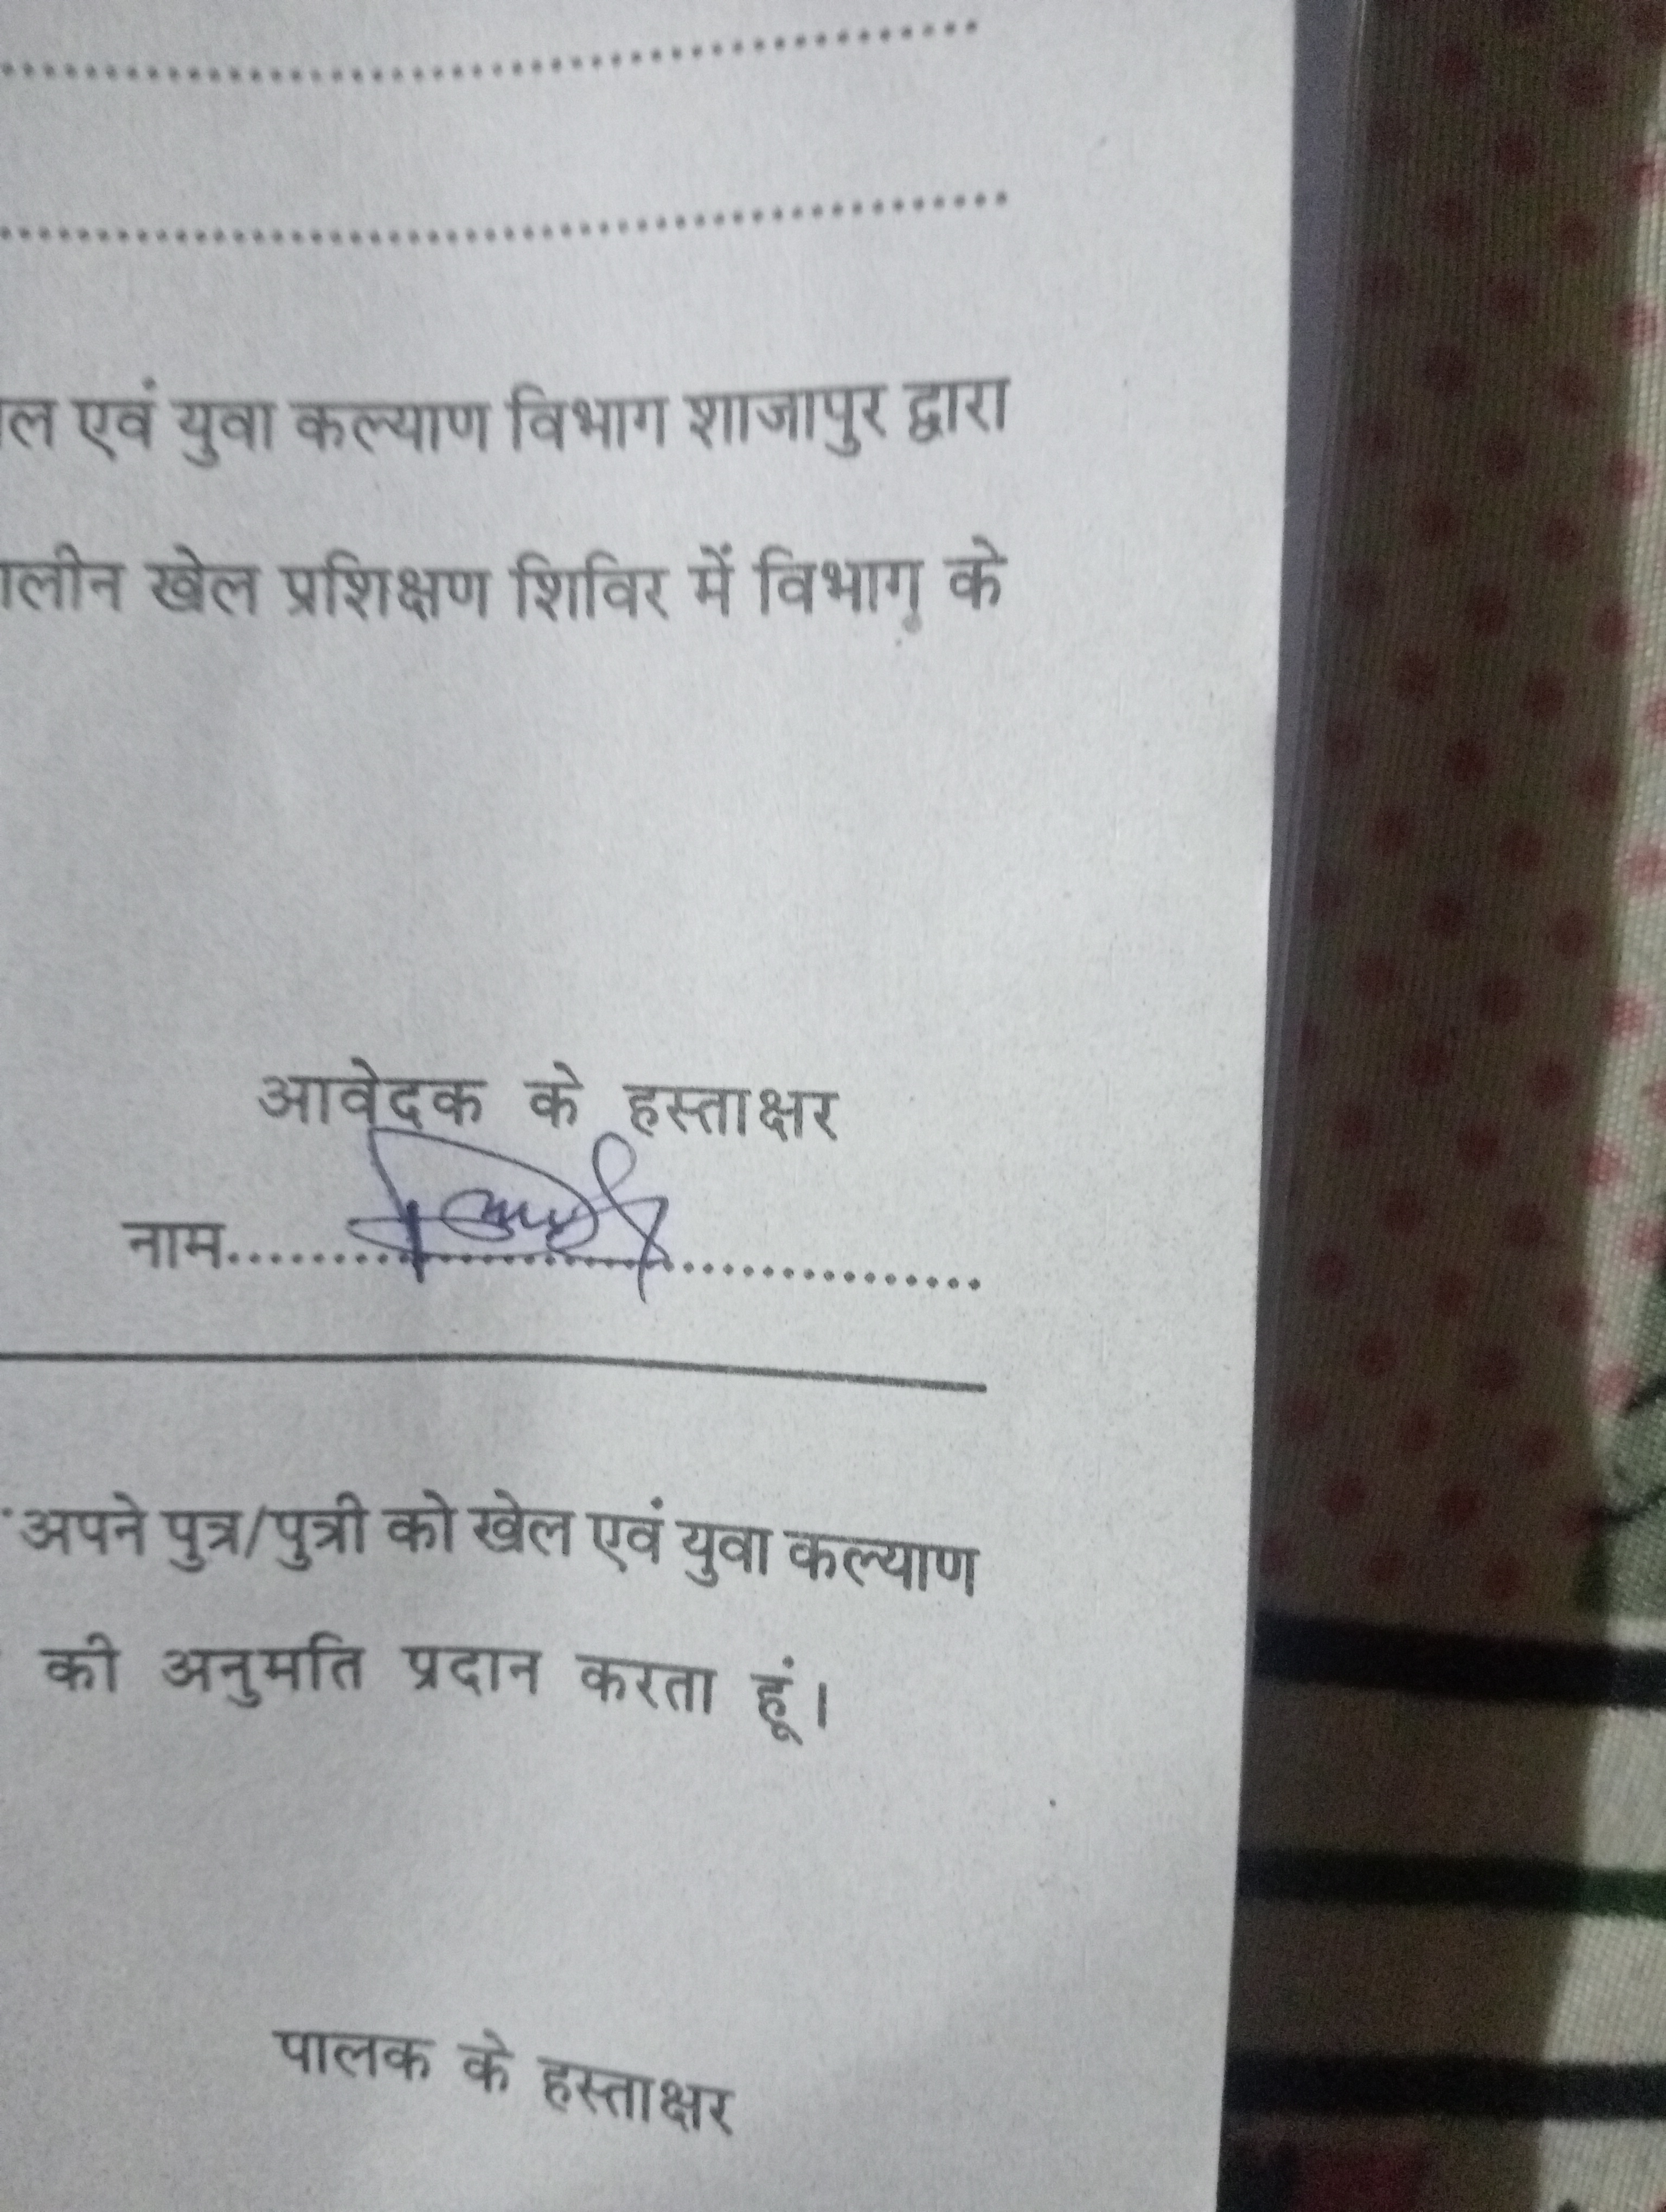 ..........................................................
..........................................................
ल एवं युवा कल्याण विभाग शाजापुर द्वारा
ालीन खेल प्रशिक्षण शिविर में विभाग के
आवेदक के हस्ताक्षर
नाम..........................................
अपने पुत्र/पुत्री को खेल एवं युवा कल्याण
की अनुमति प्रदान करता हूं।
पालक के हस्ताक्षर